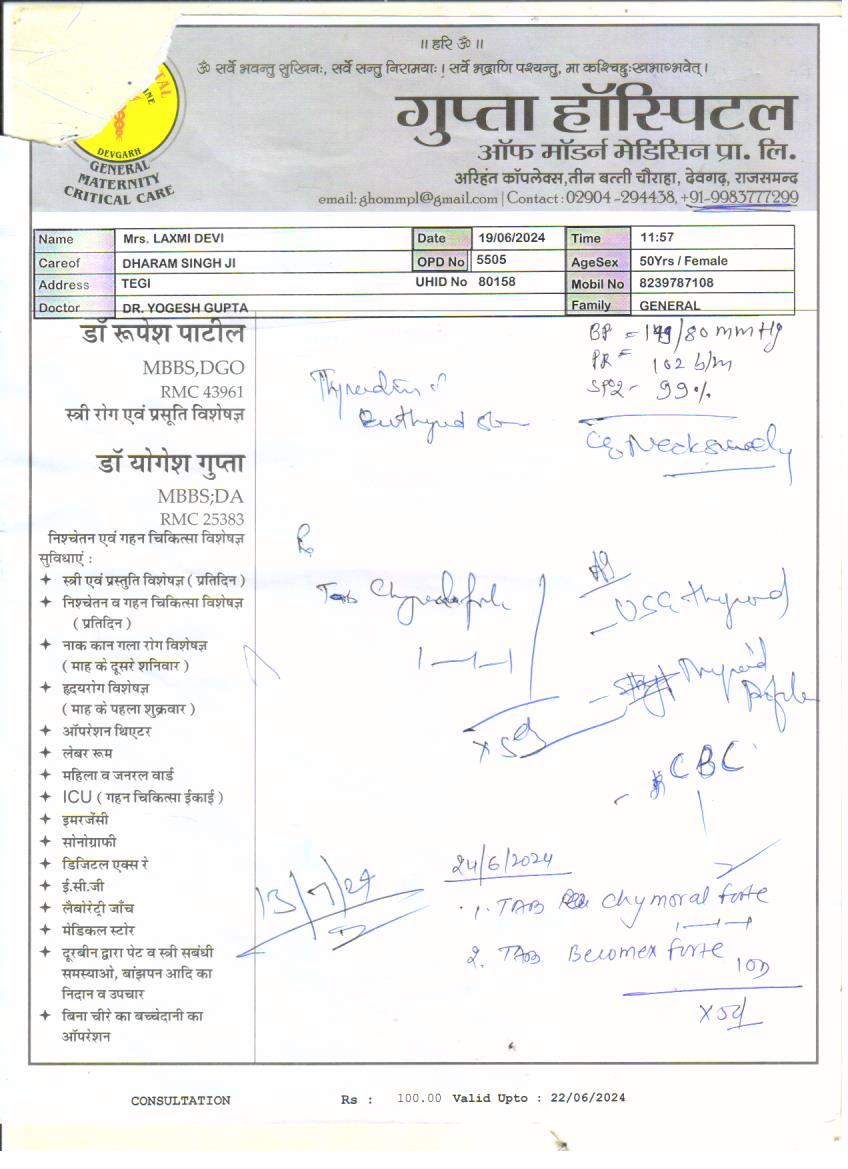 ।। हरि ॐ ।।
ॐ सर्वे भवन्तु सुखिनः, सर्वे सन्तु निरामयाः। सर्वे भद्राणि पश्यन्तु, मा कश्चिद्दुःखभाग्भवेत्।
गुप्ता हॉस्पिटल
ऑफ मॉडर्न मेडिसिन प्रा. लि.
अरिहंत कॉपलेक्स,तीन बत्ती चौराहा, देवगढ़, राजसमन्द
email: ghommpl@gmail.com | Contact : 02904 -294438, +91-9983777299
DEVGARH
GENERAL
MATERNITY
CRITICAL CARE
Name Mrs. LAXMI DEVI Date 19/06/2024 Time 11:57
Careof DHARAM SINGH JI OPD No 5505 AgeSex 50Yrs / Female
Address TEGI UHID No 80158 Mobil No 8239787108
Doctor DR. YOGESH GUPTA Family GENERAL
डॉ रूपेश पाटील
MBBS,DGO
RMC 43961
स्त्री रोग एवं प्रसूति विशेषज्ञ
डॉ योगेश गुप्ता
MBBS;DA
RMC 25383
निश्चेतन एवं गहन चिकित्सा विशेषज्ञ
सुविधाएं :
स्त्री एवं प्रस्तुति विशेषज्ञ ( प्रतिदिन )
निश्चेतन व गहन चिकित्सा विशेषज्ञ
( प्रतिदिन )
नाक कान गला रोग विशेषज्ञ
( माह के दूसरे शनिवार )
हृदयरोग विशेषज्ञ
( माह के पहला शुक्रवार )
ऑपरेशन थिएटर
लेबर रूम
महिला व जनरल वार्ड
ICU ( गहन चिकित्सा ईकाई )
इमरजेंसी
सोनोग्राफी
डिजिटल एक्स रे
ई.सी.जी
लैबोरेट्री जाँच
मेडिकल स्टोर
दूरबीन द्वारा पेट व स्त्री सबंधी
समस्याओ, बांझपन आदि का
निदान व उपचार
बिना चीरे का बच्चेदानी का
ऑपरेशन
BP = /80 mmHg
PR = 102 b/m
SPO2- 99%
Rx
Tab
1-1-1
x 5d
USG Thyroid
Thyroid Profile
CBC
24/6/2024
1. TAB Chymoral forte
1-1-1
2. TAB Becomex forte
1OD
x5d
CONSULTATION Rs : 100.00 Valid Upto : 22/06/2024